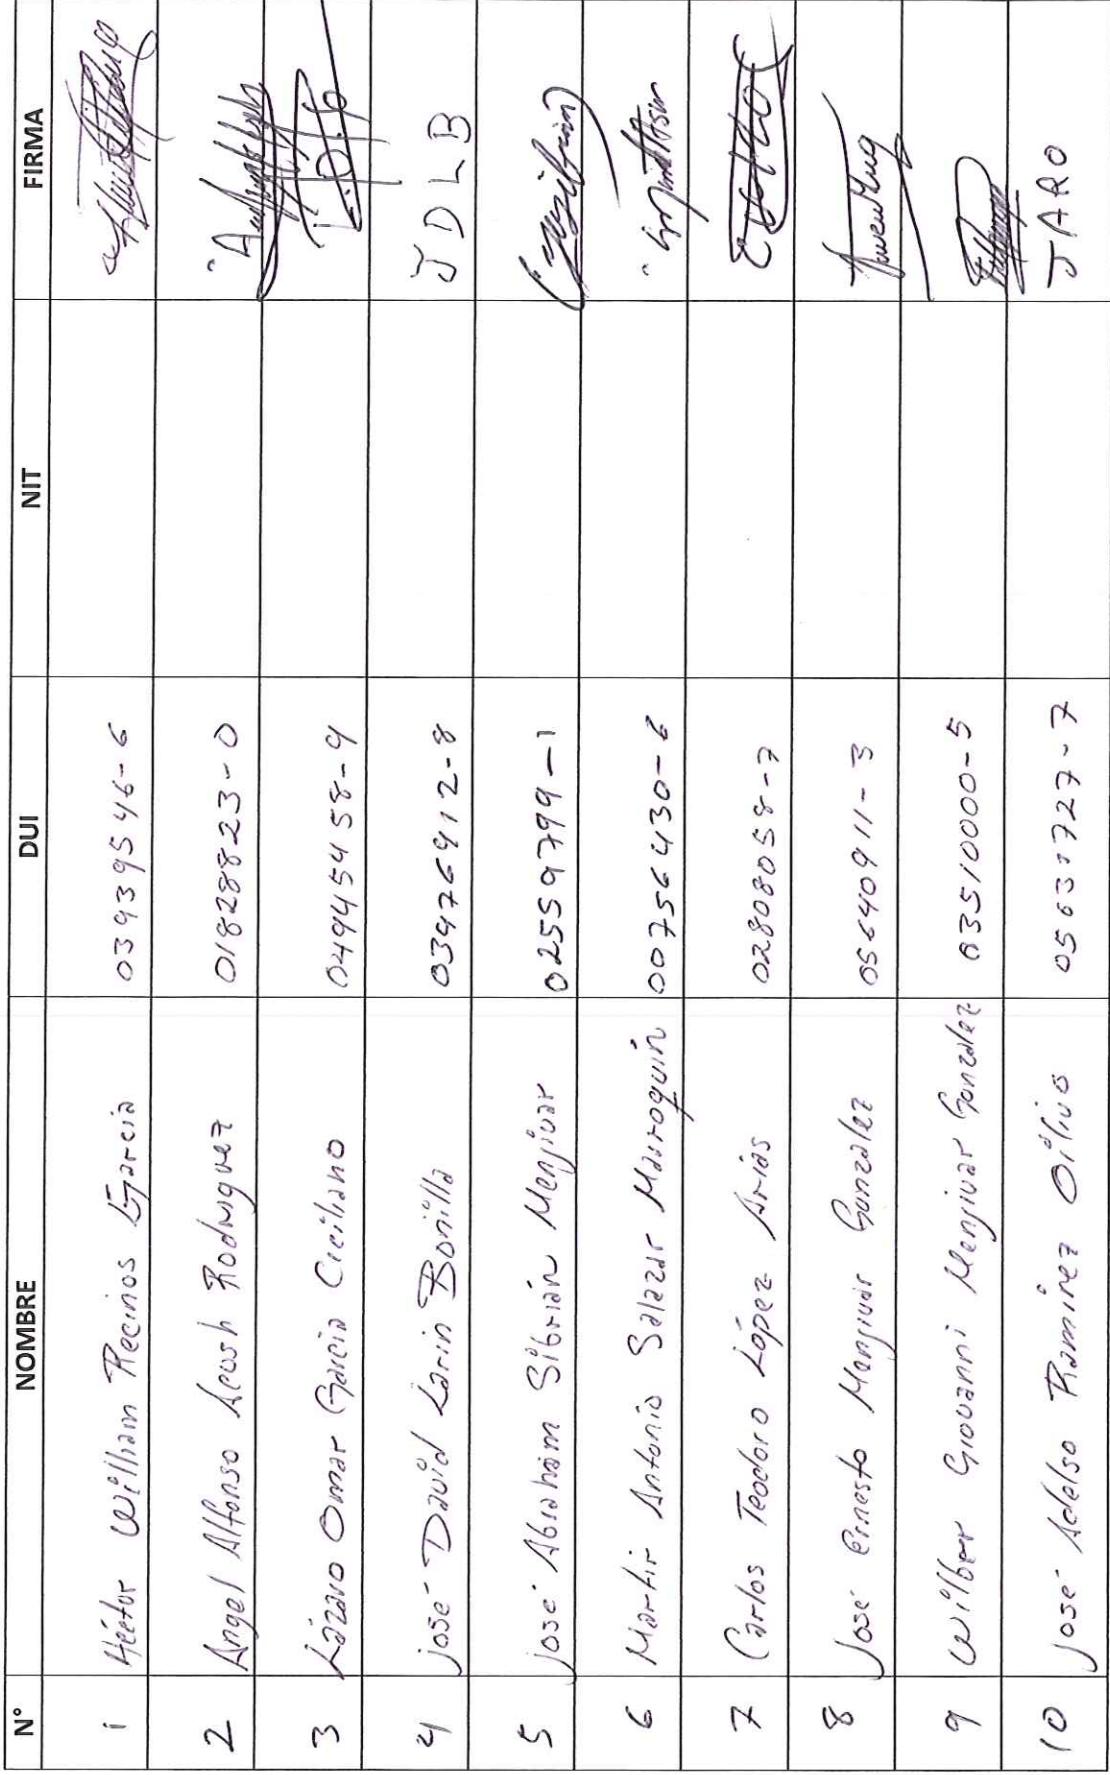 N° NOMBRE DUI NIT FIRMA
1 Héctor William Recinos García 03939546-6
2 Angel Alfonso Acosh Rodriguez 01828823-0
3 Lázaro Omar García Ciciliano 04945458-9
4 José David Larin Bonilla 03476912-8 J D L B
5 José Abraham Sibrián Menjivar 02559799-1
6 Martir Antonio Salazar Marroquín 00756430-6
7 Carlos Teodoro López Arias 02808058-7
8 José Ernesto Menjivar González 05640911-3
9 Wilber Giovanni Menjivar González 03510000-5
10 José Adelso Ramírez Orilivo JARO